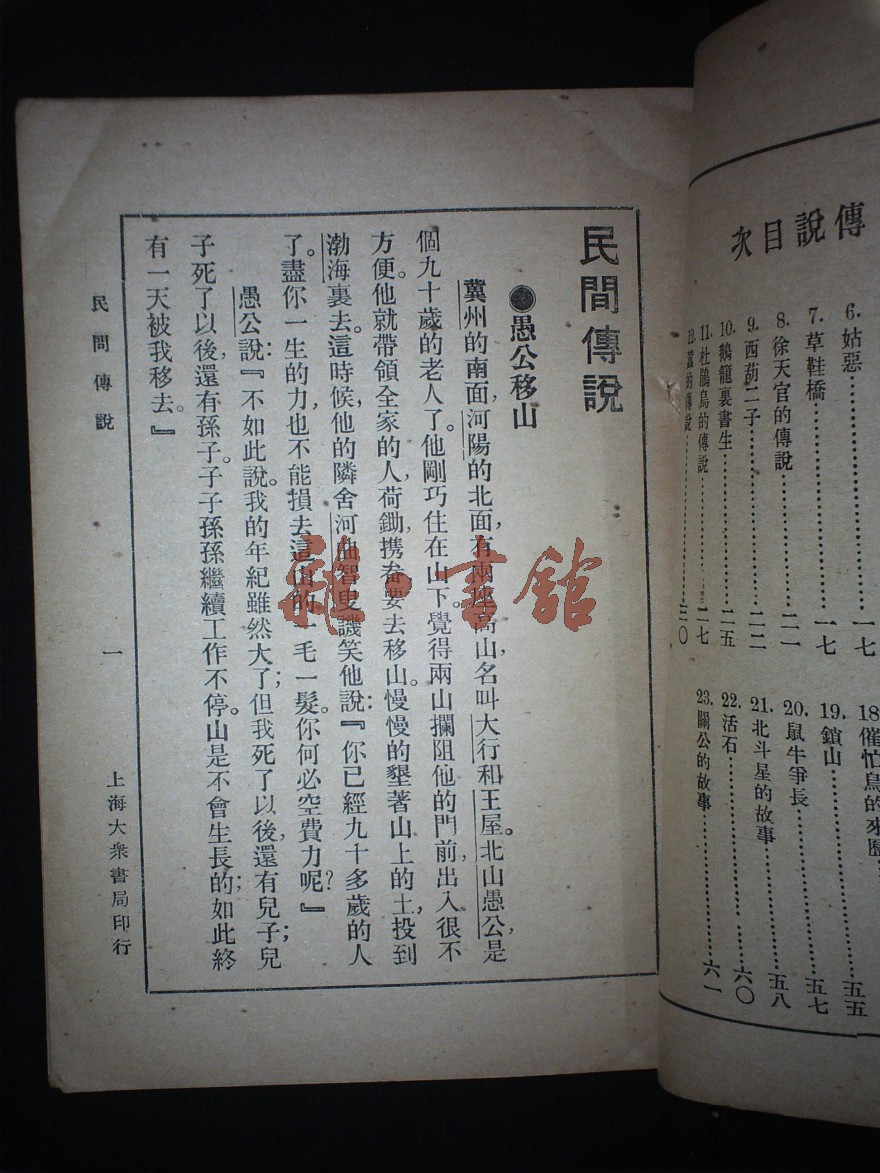 傳說目次
6. 姑惡……一七
7. 草鞋橋……一七
8. 徐天官的傳說……二一
9. 西葫二子……二二
10. 鵝籠裏書生……二五
11. 杜鵑鳥的傳說……二七
12. 的傳說……三〇
18. 催忙鳥的來歷……五五
19. 鎖山……五七
20. 鼠牛爭長……五八
21. 北斗星的故事
22. 活石……六〇
23. 關公的故事……六一
民間傳說
●愚公移山
冀州的南面，河陽的北面，有兩座高山，名叫大行和王屋。北山愚公，是
個九十歲的老人了。他剛巧住在山下。覺得兩山攔阻他的門前，出入很不
方便。他就帶領全家的人，荷鋤攜畚，要去移山。慢慢的墾著山上的土，投到
渤海裏去。這時候，他的隣舍河曲智叟譏笑他說：『你已經九十多歲的人
了。盡你一生的力，也不能損去這山的一毛一髮。你何必空費力呢？』
愚公說：『不如此說。我的年紀雖然大了；但我死了以後，還有兒子；兒
子死了以後，還有孫子。子子孫孫，繼續工作不停。山是不會生長的；如此終
有一天被我移去。』
民間傳說
一
上海大衆書局印行
龍·書館